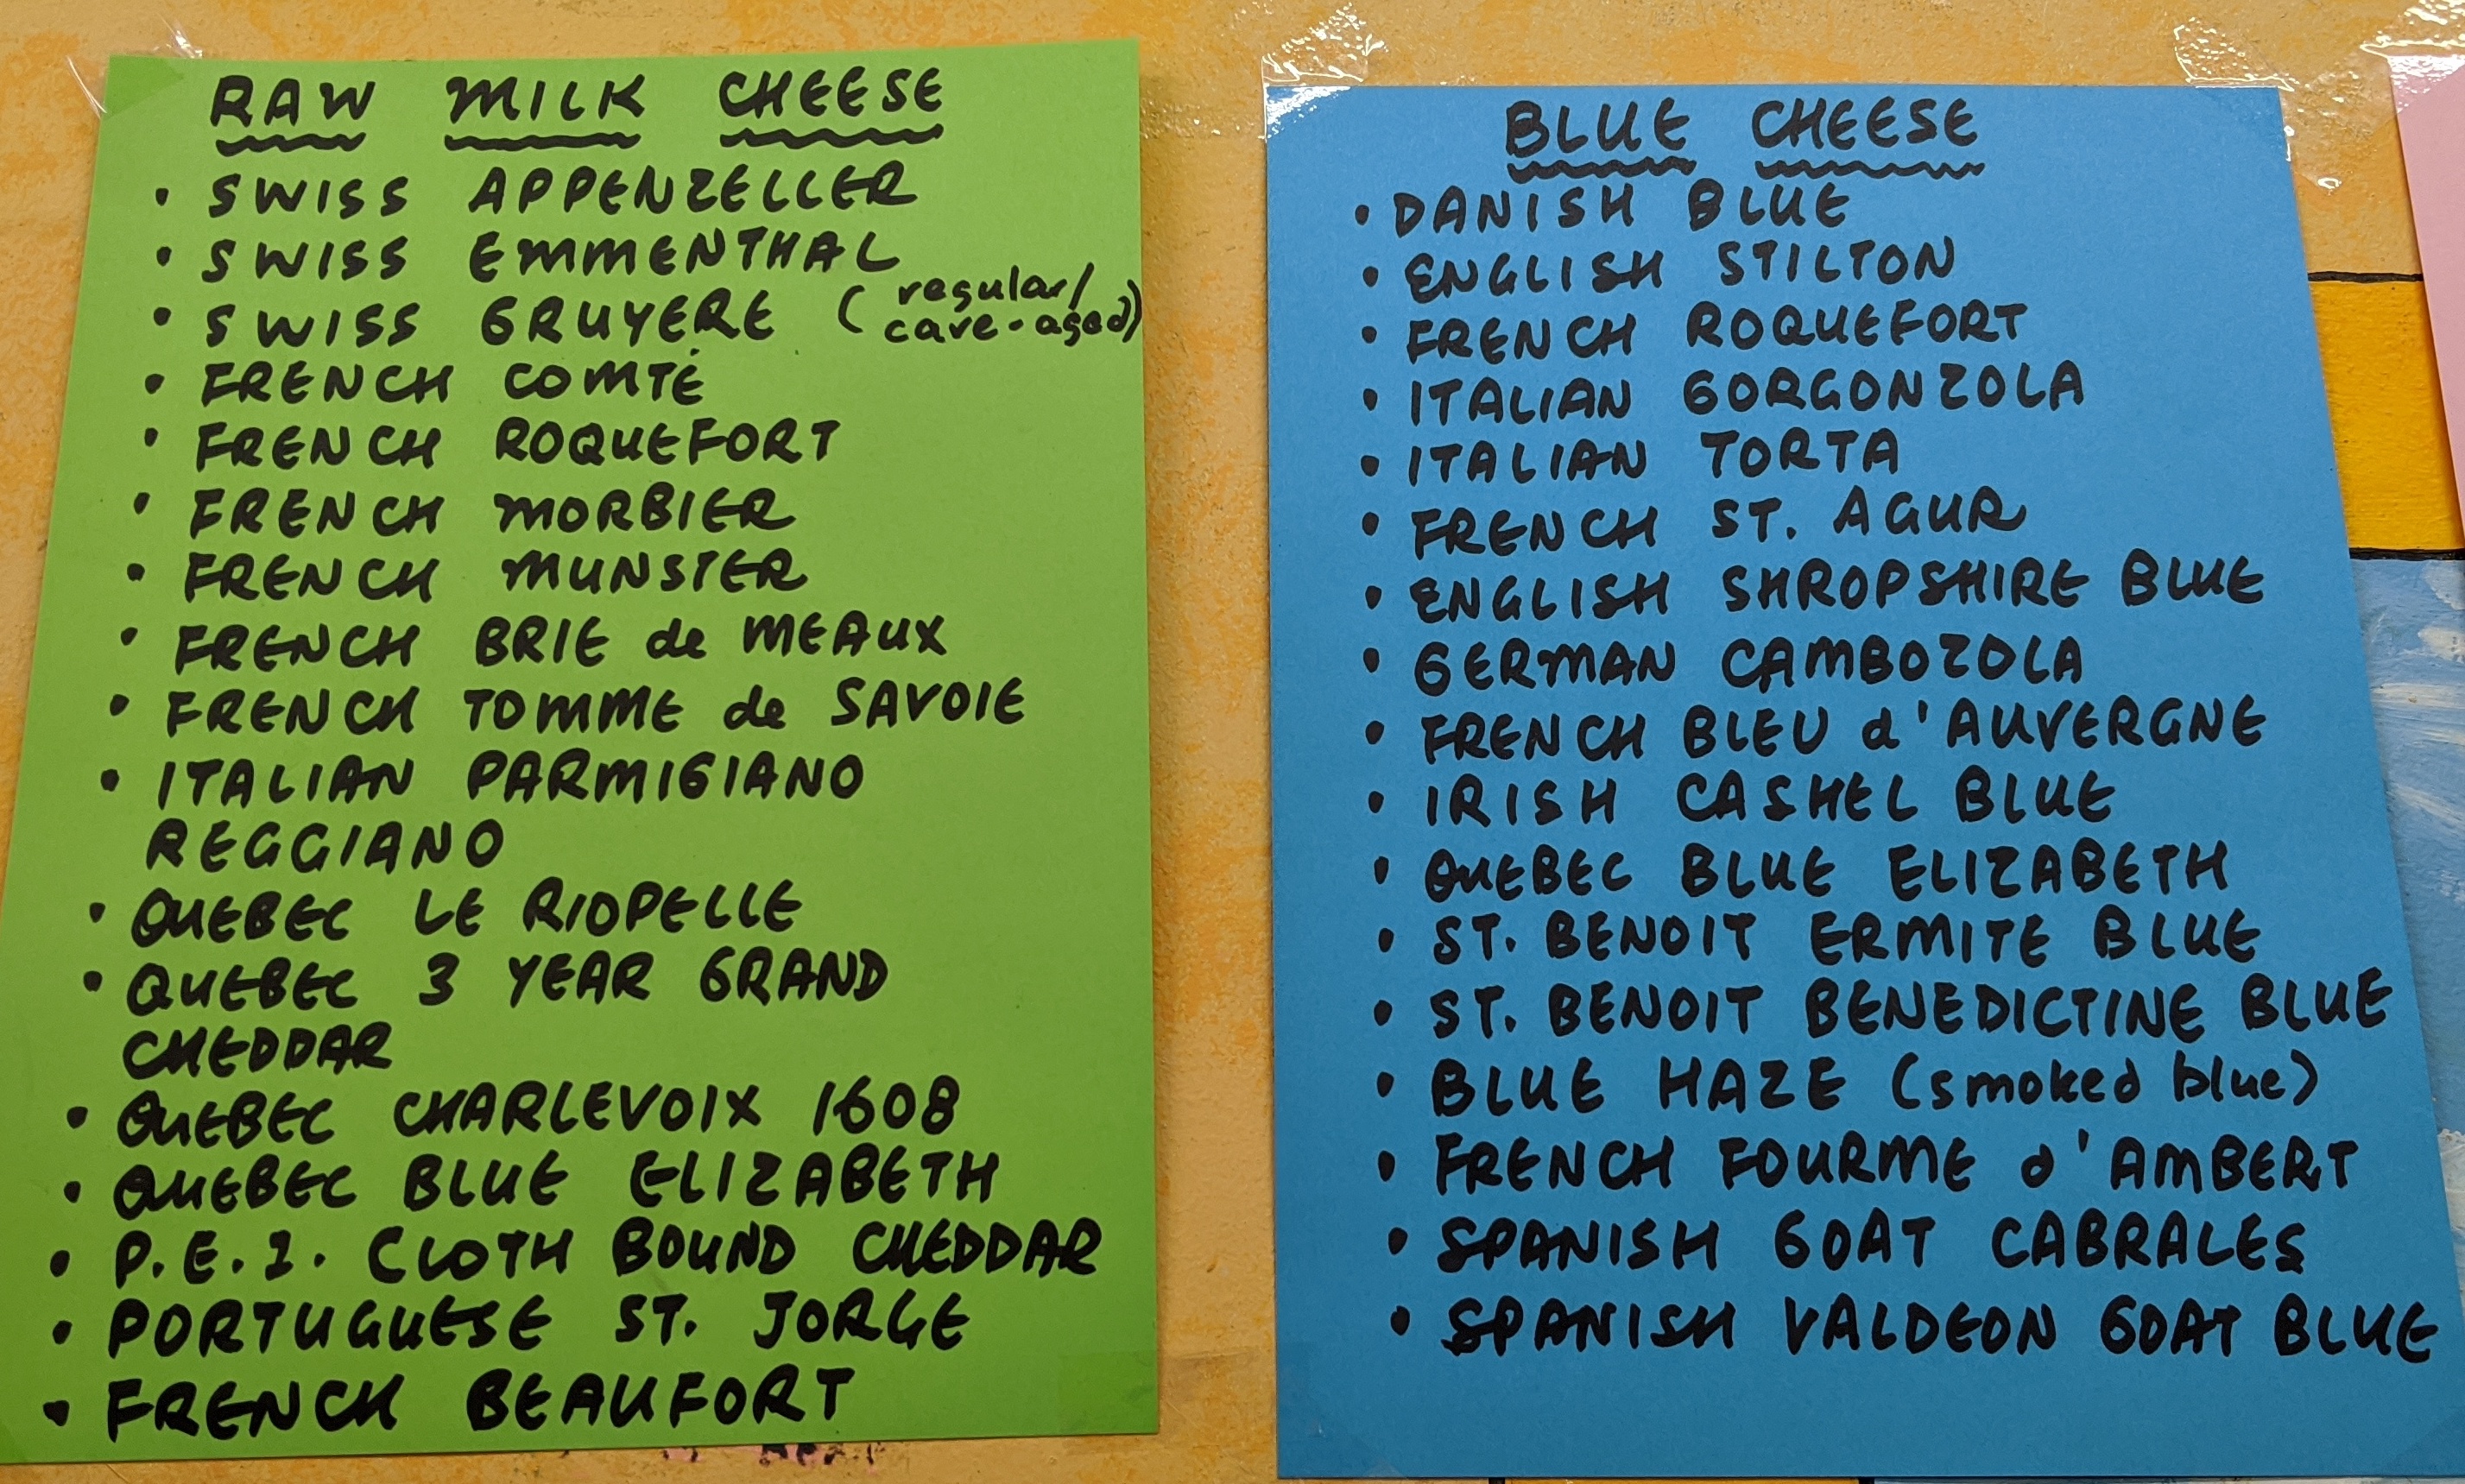 RAW MILK CHEESE
• SWISS APPENZELLER
• SWISS EMMENTHAL
• SWISS GRUYERE (regular/
cave-aged)
• FRENCH COMTÉ
• FRENCH ROQUEFORT
• FRENCH MORBIER
• FRENCH MUNSTER
• FRENCH BRIE de MEAUX
• FRENCH TOMME de SAVOIE
• ITALIAN PARMIGIANO
REGGIANO
• QUEBEC LE RIOPELLE
• QUEBEC 3 YEAR GRAND
CHEDDAR
• QUEBEC CHARLEVOIX 1608
• QUEBEC BLUE ELIZABETH
• P.E.I. CLOTH BOUND CHEDDAR
• PORTUGUESE ST. JORGE
• FRENCH BEAUFORT
BLUE CHEESE
• DANISH BLUE
• ENGLISH STILTON
• FRENCH ROQUEFORT
• ITALIAN GORGONZOLA
• ITALIAN TORTA
• FRENCH ST. AGUR
• ENGLISH SHROPSHIRE BLUE
• GERMAN CAMBOZOLA
• FRENCH BLEU d'AUVERGNE
• IRISH CASHEL BLUE
• QUEBEC BLUE ELIZABETH
• ST. BENOIT ERMITE BLUE
• ST. BENOIT BENEDICTINE BLUE
• BLUE HAZE (smoked blue)
• FRENCH FOURME d'AMBERT
• SPANISH GOAT CABRALES
• SPANISH VALDEON GOAT BLUE